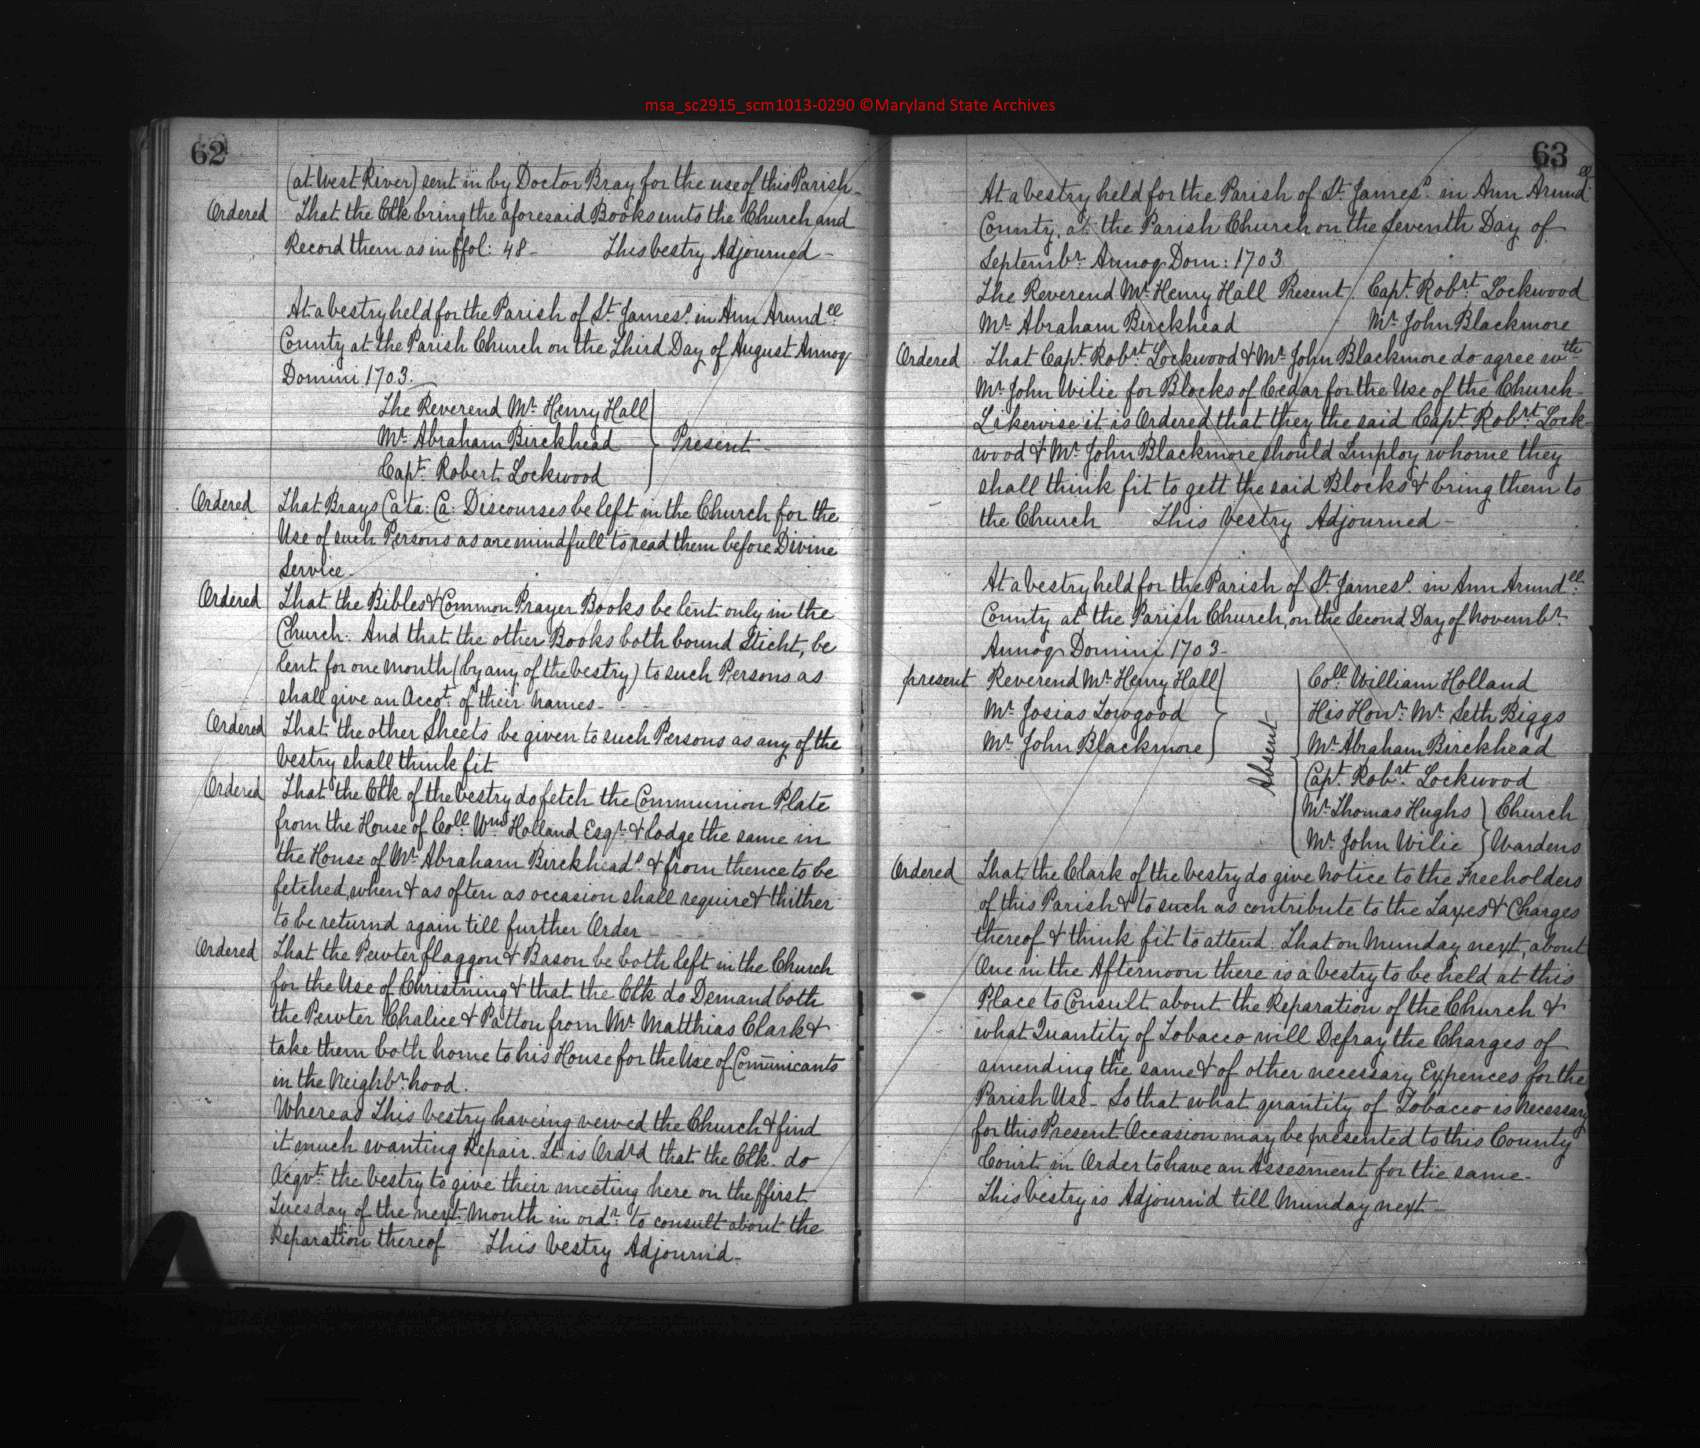 msa_sc2915_scm1013-0290 ©Maryland State Archives
62
(at West River) sent in by Doctor Bray for the use of this Parish-
Ordered That the Clk bring the aforesaid Books unto the Church and
Record them as in ffol: 48- This vestry Adjourned-
At a vestry held for the Parish of St. James's in Ann Arundell
County at the Parish Church on the Third Day of August Annoq
Domini 1703.
The Reverend Mr. Henry Hall
Mr. Abraham Birckhead Present-
Capt. Robert Lockwood
Ordered That Brays Cata: Ca: Discourses be left in the Church for the
Use of such Persons as are mindfull to read them before Divine
Service-
Ordered That the Bibles & Common Prayer Books be lent only in the
Church. And that the other Books both bound Sticht, be
lent for one month (by any of the vestry) to such Persons as
shall give an Accot. of their names-
Ordered That the other Sheets be given to such Persons as any of the
Vestry shall think fit
Ordered That the Clk of the vestry do fetch the Communion Plate
from the House of Coll. Wm. Holland Esqr. & lodge the same in
the House of Mr. Abraham Birckhead's & from thence to be
fetched, when & as often as occasion shall require & thither
to be returnd again till further Order
Ordered That the Pewter flaggon & Bason be both left in the Church
for the Use of Christning & that the Clk do Demand both
the Pewter Chalice & Patton from Mr. Matthias Clark &
take them both home to his House for the Use of Comunicants
in the Neighbr.hood.
Whereas This vestry haveing verved the Church & find
it much wanting Repair. It is Ordrd that the Clk. do
Acqvt. the vestry to give their meeting here on the ffirst
Tuesday of the next Month in ordr. to consult about the
Reparation thereof This Vestry Adjournd-
63
At a vestry held for the Parish of St. James's in Ann Arundell
County, at the Parish Church on the Seventh Day of
Septembr. Annoq Dom: 1703
The Reverend Mr. Henry Hall Present Capt. Robrt. Lockwood
Mr. Abraham Birckhead Mr. John Blackmore
Ordered That Capt. Robrt. Lockwood & Mr. John Blackmore do agree wth
Mr. John Wilie for Blocks of Cedar for the Use of the Church-
Likewise it is Ordered that they the said Capt. Robrt. Lock-
wood & Mr. John Blackmore should Imploy whome they
shall think fit to gett the said Blocks & bring them to
the Church This Vestry Adjourned-
At a vestry held for the Parish of St. James's in Ann Arundell:
County at the Parish Church, on the Second Day of Novembr.
Annoq Domini 1703-
present Reverend Mr. Henry Hall Coll William Holland
Mr. Josias Towgood His Honr. Mr. Seth Biggs
Mr. John Blackmore Absent Mr. Abraham Birckhead
Capt. Robrt. Lockwood
Mr. Thomas Hughs Church
Mr. John Wilie Wardens
Ordered That the Clark of the vestry do give notice to the Freeholders
of this Parish & to such as contribute to the Taxes & Charges
thereof & think fit to attend. That on Munday next, about
One in the Afternoon there is a Vestry to be held at this
Place to Consult about the Reparation of the Church &
what Quantity of Tobacco will Defray the Charges of
amending the same & of other necessary Expences for the
Parish Use- So that what quantity of Tobacco is Necessary
for this Present Occasion may be presented to this County
Court in Order to have an Assesment for the same-
This Vestry is Adjournd till Munday next-